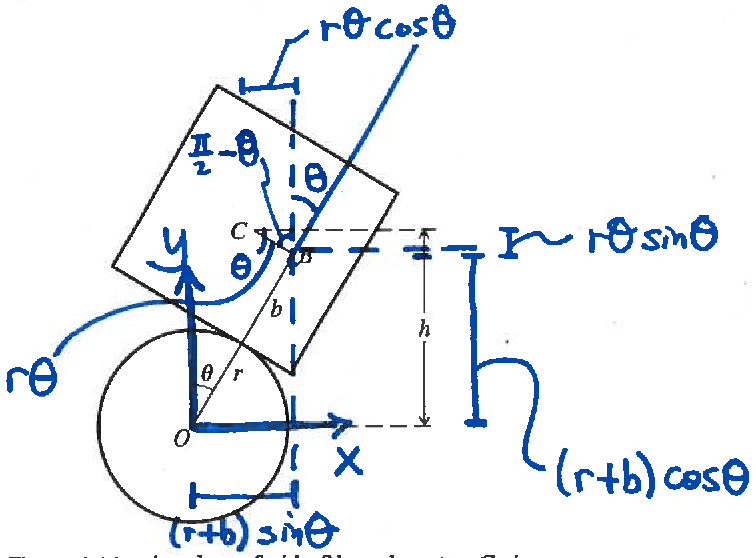 rθcosθ
π/2-θ
θ
C
B
rθsinθ
y
θ
b
h
rθ
θ
r
O
x
(r+b)cosθ
(r+b)sinθ